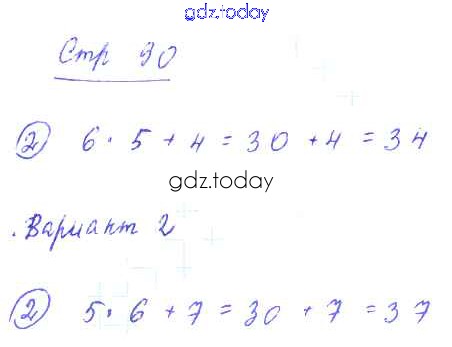 gdz.today
Стр 90
2 6 · 5 + 4 = 30 + 4 = 34
gdz.today
. Вариант 2
2 5 · 6 + 7 = 30 + 7 = 37